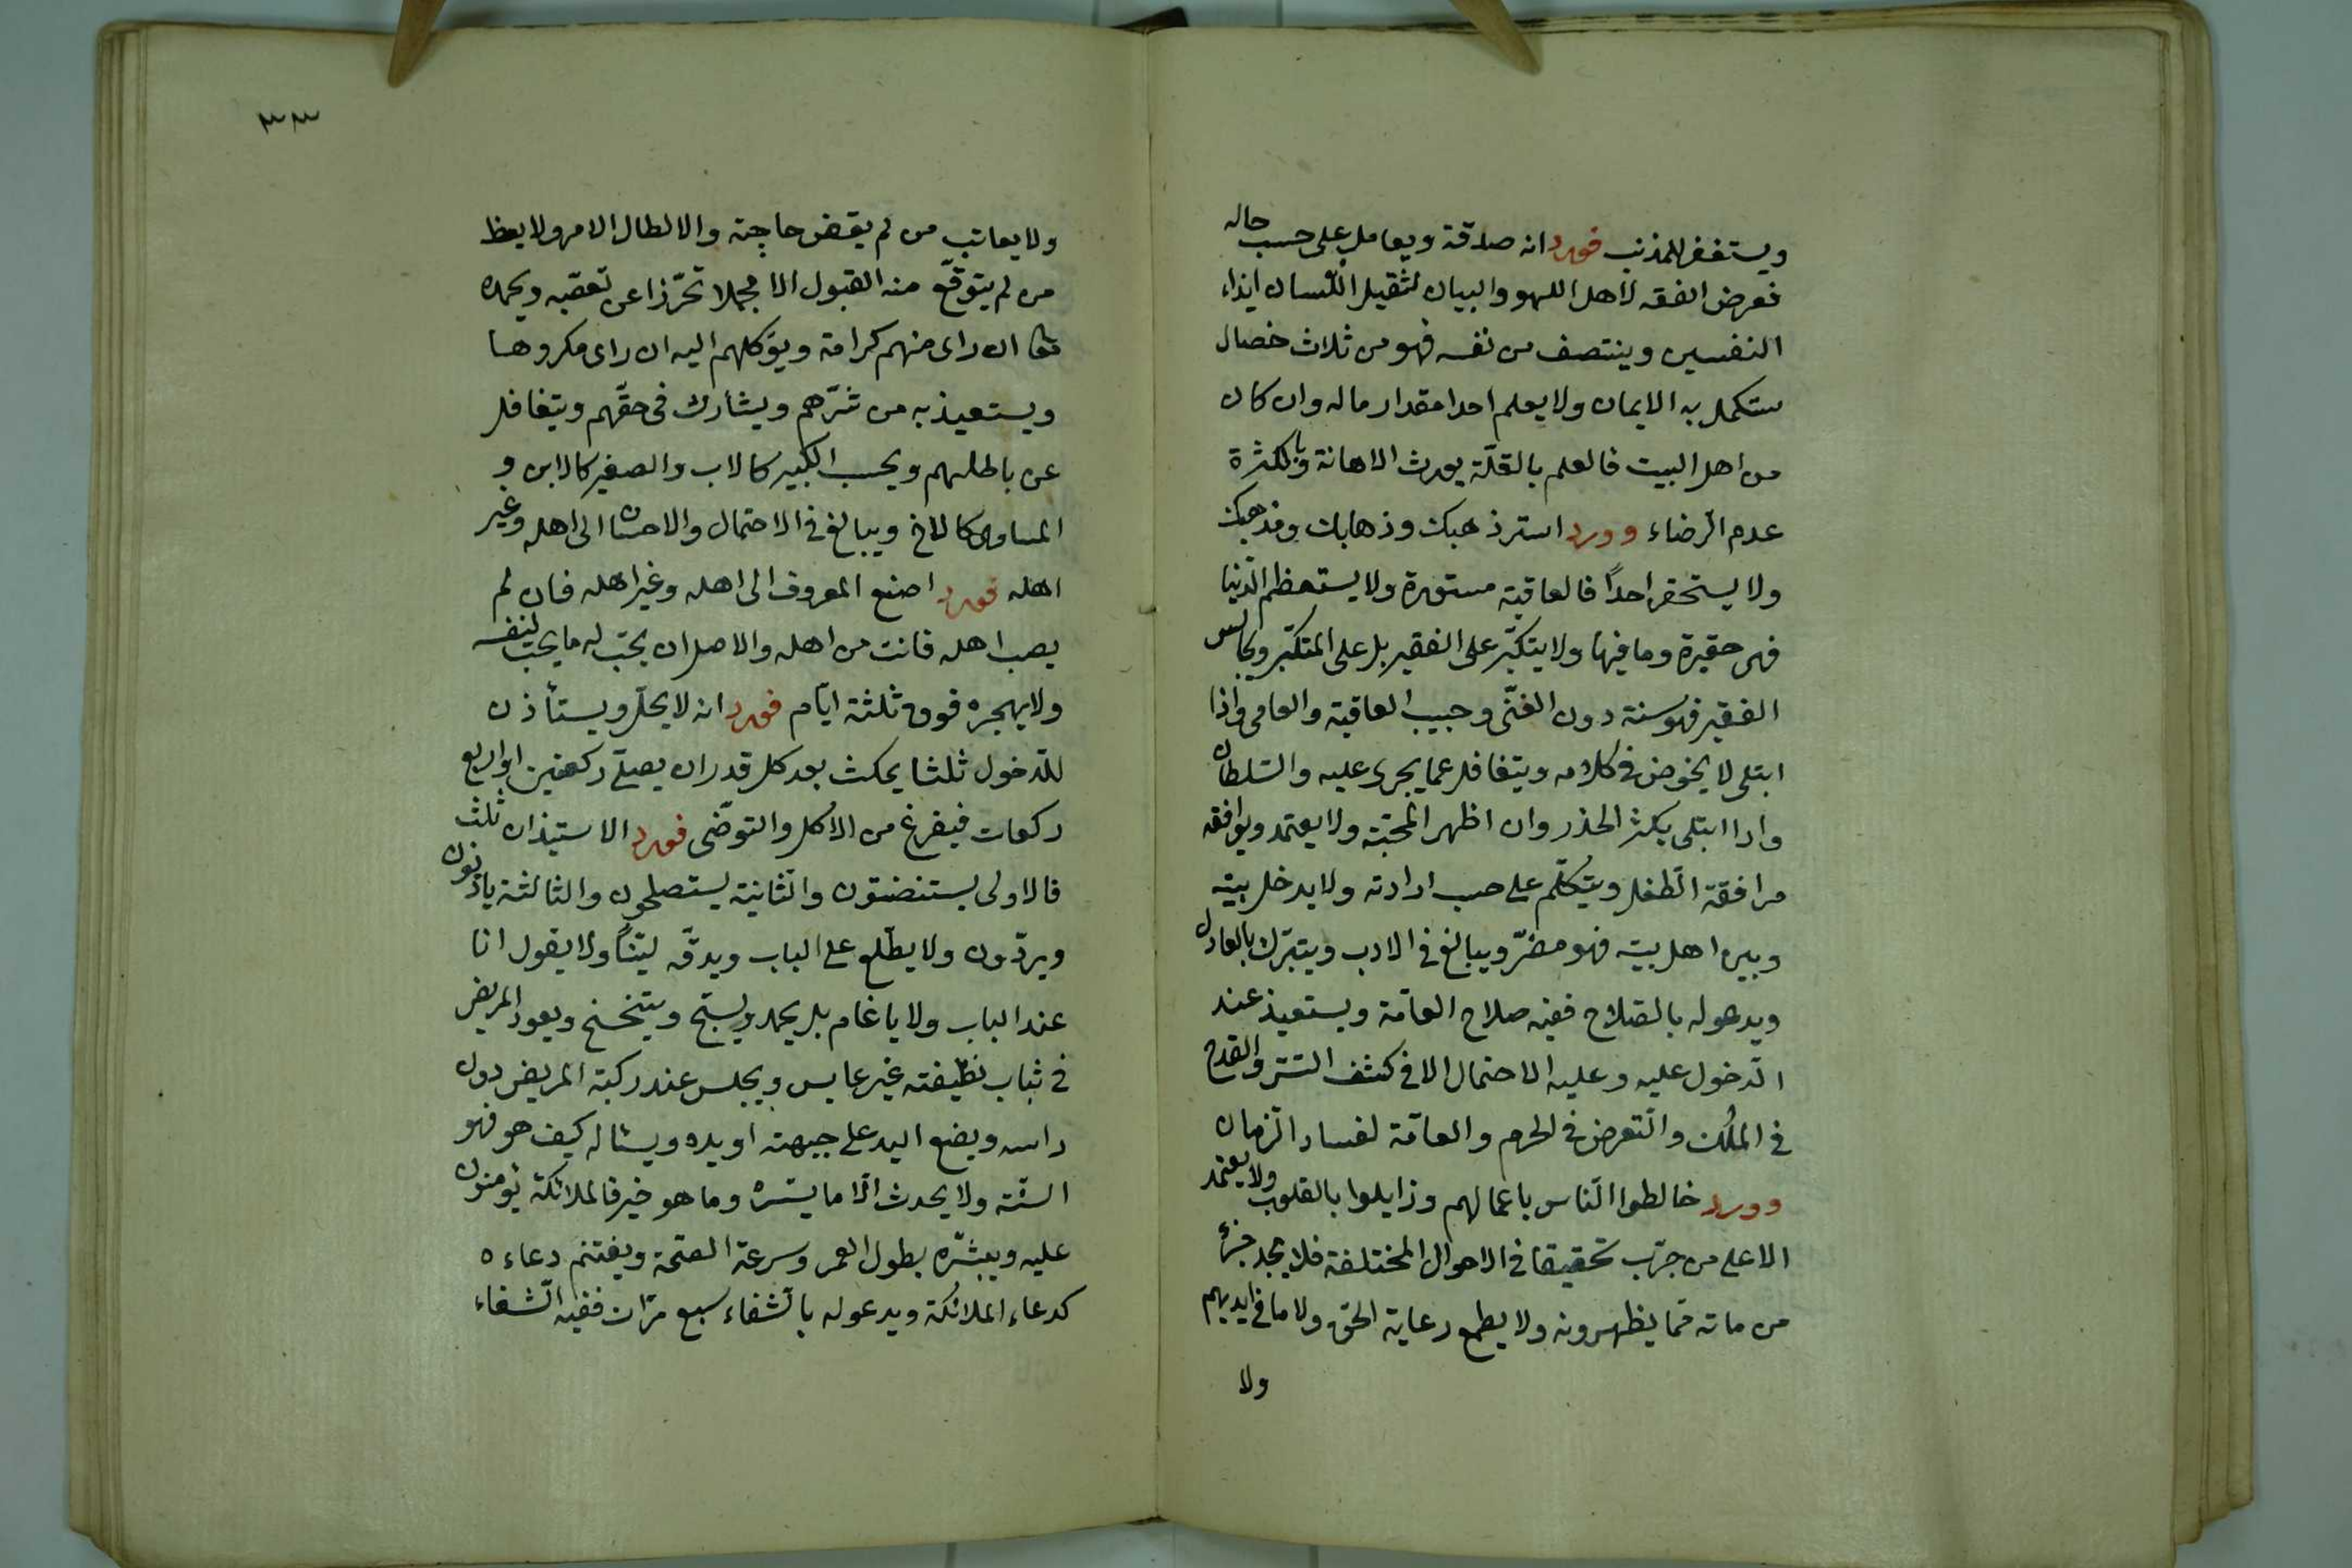 ويستغفر للمذنب فورد انه صدقة ويعامل على حسب حاله
فعرض الفقه لاهل اللهو والبيان لثقيل اللسان ايذاء
النفسين وينتصف من نفسه فهو من ثلاث خصال
ستكمل به الايمان ولا يعلم احدا مقدار ماله وان كان
من اهل البيت فالعلم بالقلّة يورث الاهانة وبالكثرة
عدم الرضاء وورد استر ذهبك وذهابك ومذهبك
ولا يستحقر احداً فالعاقبة مستورة ولا يستعظم الدنيا
فهى حقيرة وما فيها ولا يتكبّر على الفقير بل على المتكبّر ويجالس
الفقير فهو سنة دون الغنّى وحبيب العاقبة والعامى واذا
ابتلى لا يخوض فى كلامه ويتغافل عما يجرى عليه والسّلطان
واذا ابتلى يكثر الحذر وان اظهر المحبّة ولا يعتمد ويوافقه
مرافقة الطفل ويتكلّم على حسب ارادته ولا يدخل بيته
وبين اهل بيته فهو مضرّ ويبالغ فى الادب ويتبرّك بالعادل
ويدعو له بالصّلاح ففيه صلاح العامّة ويستعيذ عند
الدخول عليه وعليه الاحتمال الا فى كشف السّتر والقدح
فى الملُك والتّعرض فى الحرم والعامّة لفساد الزمان
وورد خالطوا النّاس باعمالهم وزايلوا بالقلوب ولا يعتمد
الا على من جرّب تحقيقا فى الاحوال المختلفة فلا يجد جزء
من ماته ممّا يظهرونه ولا يطمع رعاية الحق ولا ما فى ايديهم
ولا
٣٣
ولا يعاتب من لم يقض حاجته والا لطال الامر ولا يعظ
من لم يتوقّع منه القبول الا مجملا تحّرزا عن تعصّبه ويحمده
تعا ان راى منهم كرامة ويوكّلهم اليه ان راى مكروها
ويستعيذ به من شرّهم ويشارك فى حقّهم ويتغافل
عن باطلهم ويحسب الكبير كالاب والصغير كالابن و
المساوى كالاخ ويبالغ فى الاحتمال والاحسان الى اهله وغير
اهله فورد اصنع المعروف الى اهله وغير اهله فان لم
يصب اهله فانت من اهله والاصل ان يحبّ له ما يحبّ لنفسه
ولا يهجره فوق ثلثة ايّام فورد انه لا يحلّ ويستأذن
للدّخول ثلثا يمكث بعد كل قدر ان يصلّى ركعتين او اربع
ركعات فيفرغ من الاكل والتوضّى فورد الاستيذان ثلث
فالاولى يستنضتون والثانية يستصلحون والثالثة يأذنون
ويردّون ولا يطّلع على الباب ويدقّه ليّناً ولا يقول انا
عند الباب ولا يا غلام بل يحمد ويسبّح ويتنحنح ويعود المريض
فى ثياب نظيفته غير عابس ويجلس عند ركبة المريض دون
راسه ويضع اليد على جبهته او يده ويسئاله كيف هو فهو
السنّة ولا يحدث الّا ما يسّره وما هو خير فالملائكة يؤمنون
عليه ويبشّره بطول العمر وسرعة الصّحة ويغتنم دعاءه
كدعاء الملائكة ويدعو له بالشفاء سبع مرّات ففيه الشّفاء